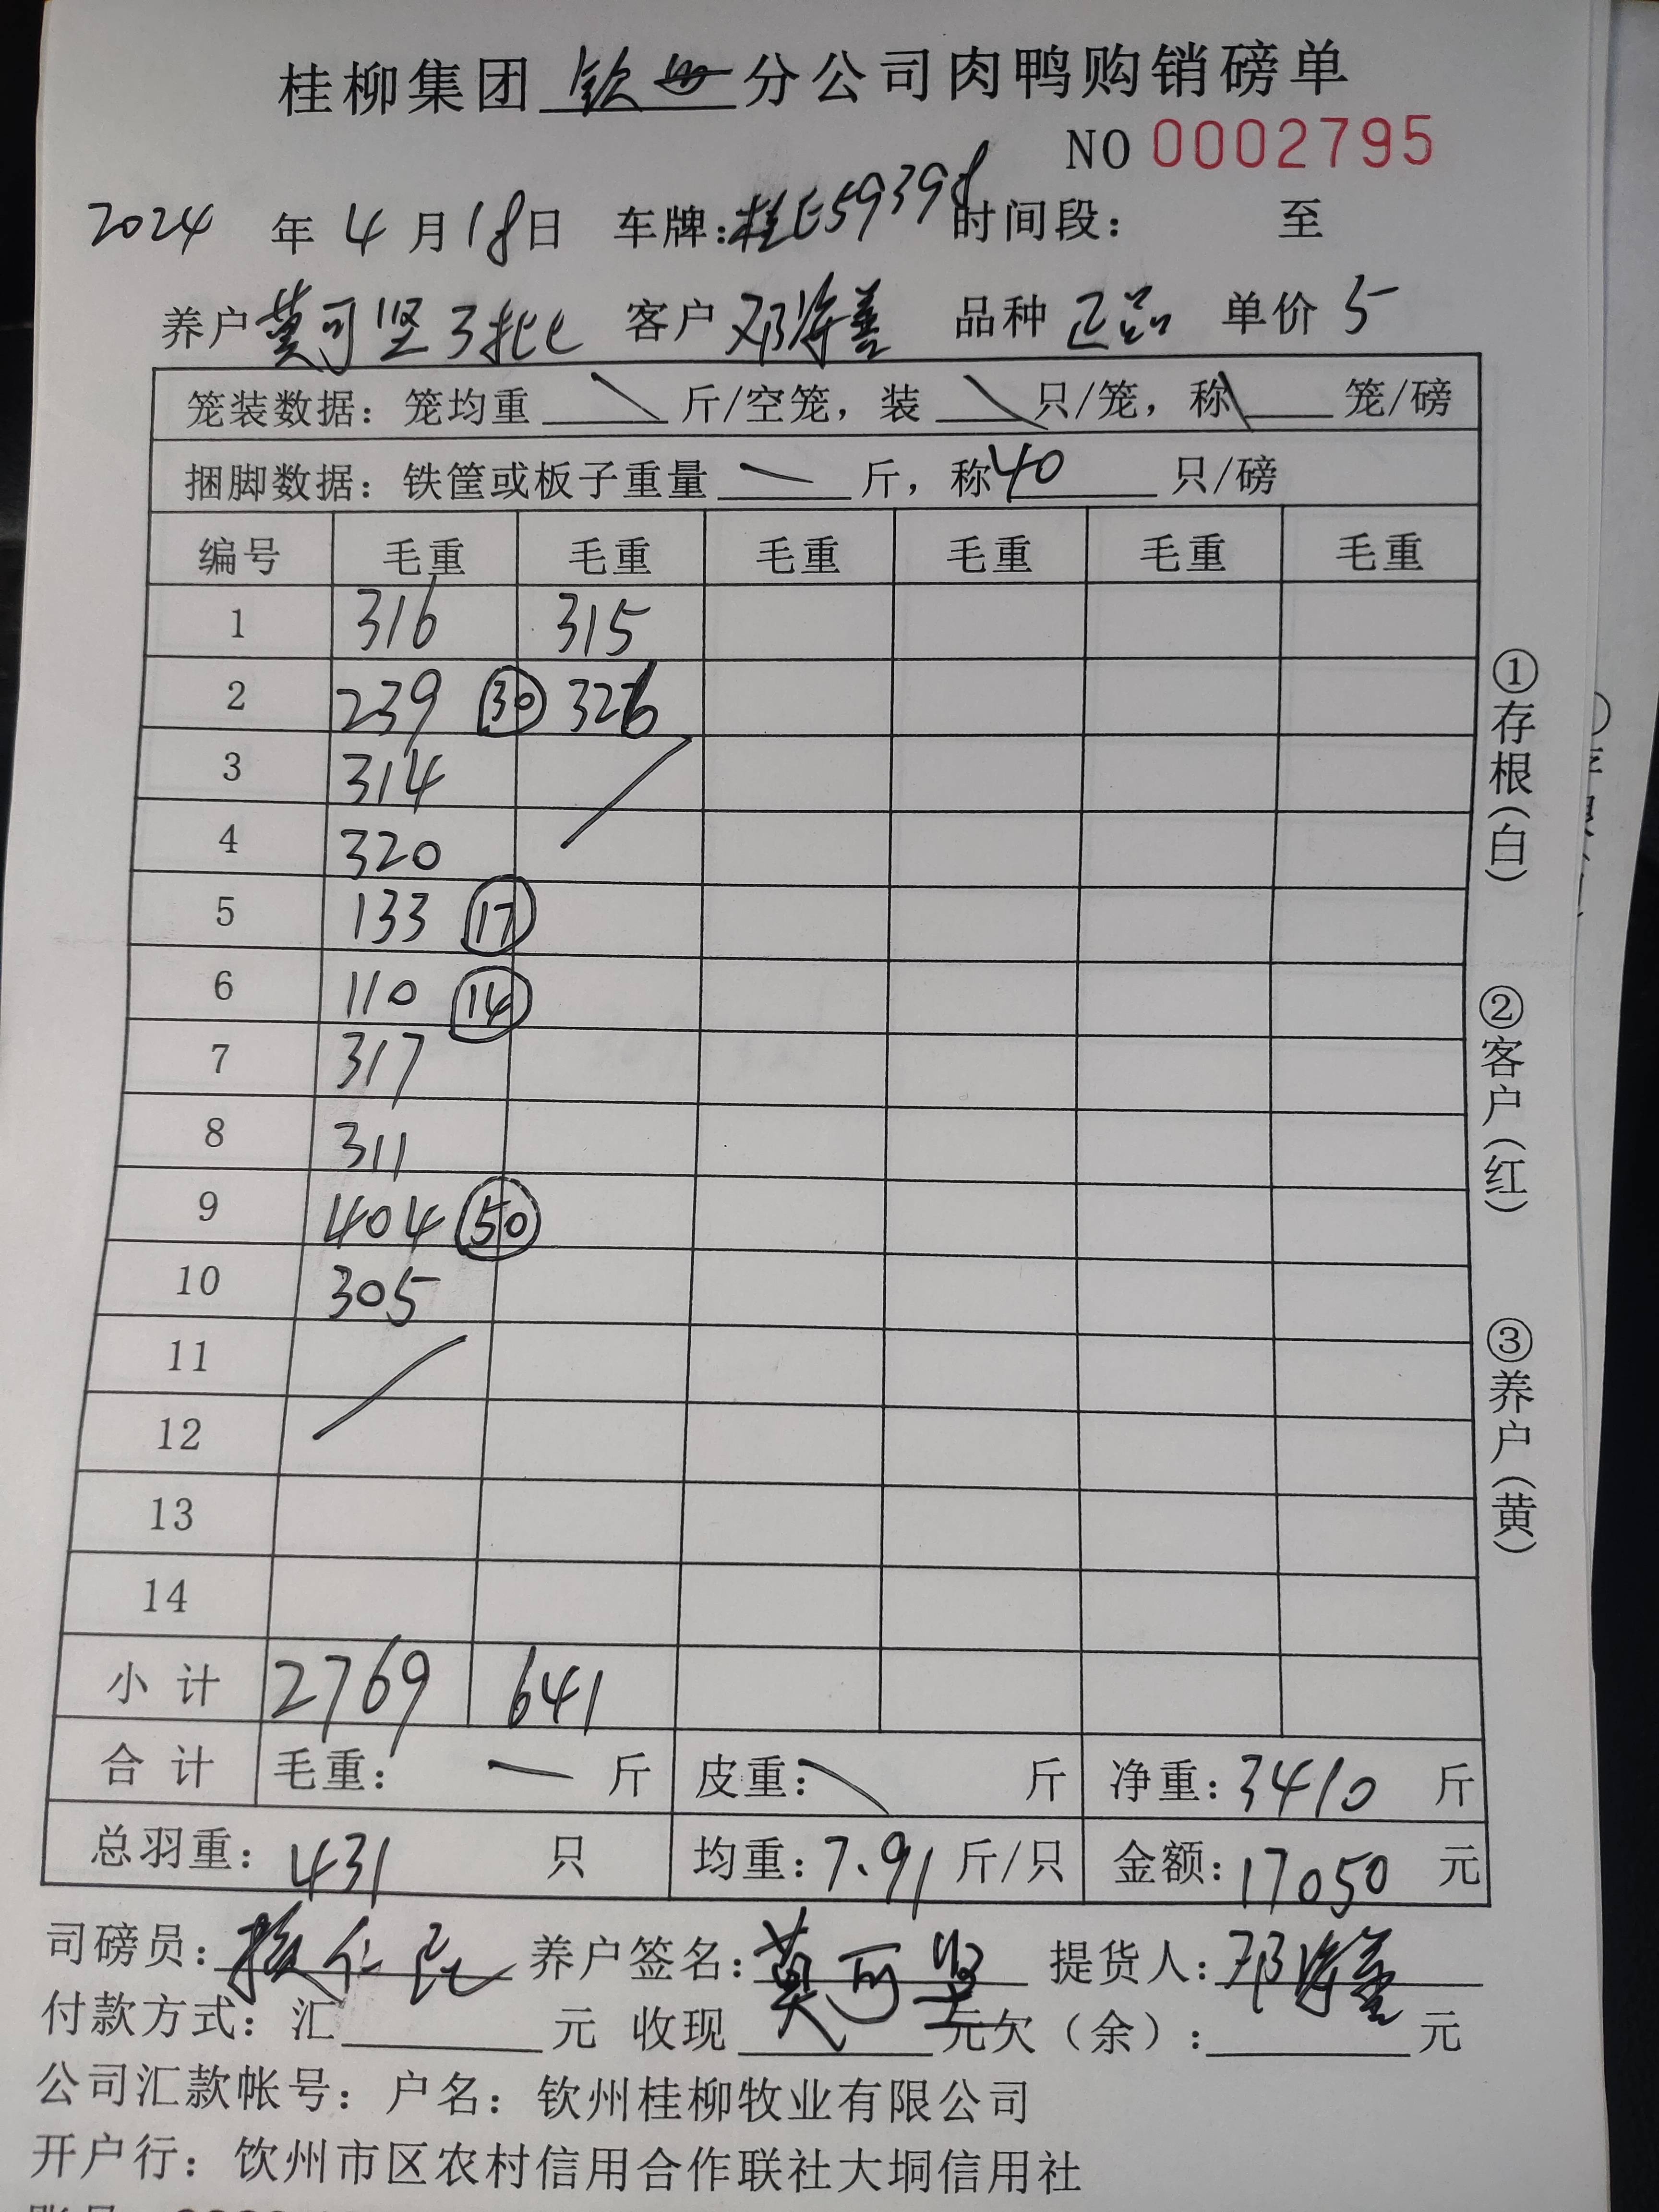 桂柳集团 钦州 分公司肉鸭购销磅单
NO 0002795
2024 年 4 月 18 日 车牌:桂E59398 时间段: 至
养户 莫可坚3批 客户 邓海善 品种 正品 单价 5
笼装数据: 笼均重 斤/空笼, 装 只/笼, 称 笼/磅
捆脚数据: 铁筐或板子重量 斤, 称 40 只/磅
编号 毛重 毛重 毛重 毛重 毛重 毛重
1 316 315
2 239 30 326
3 314
4 320
5 133 17
6 110 14
7 317
8 311
9 404 50
10 305
11
12
13
14
小计 2769 641
合计 毛重: 斤 皮重: 斤 净重: 3410 斤
总羽重: 431 只 均重: 7.91 斤/只 金额: 17050 元
司磅员: 养户签名: 莫可坚 提货人: 邓海善
付款方式: 汇 元 收现 元欠(余): 元
公司汇款帐号: 户名: 钦州桂柳牧业有限公司
开户行: 钦州市区农村信用合作联社大垌信用社
①存根(白)
②客户(红)
③养户(黄)